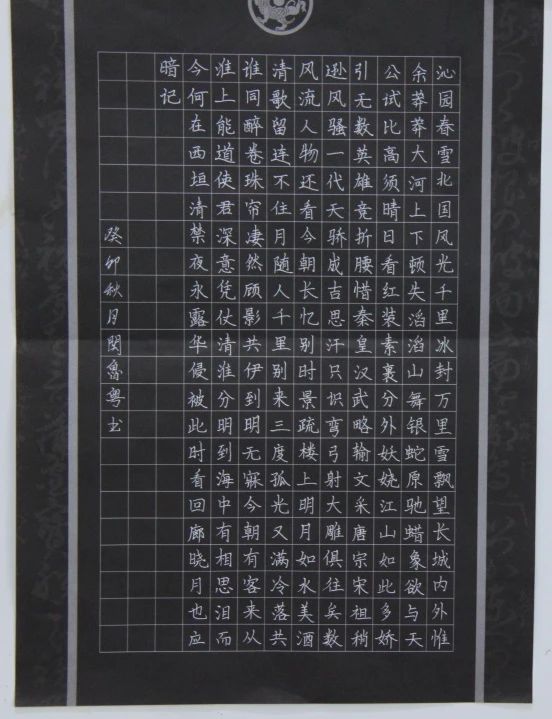 沁园春雪北国风光千里冰封万里雪飘望长城内外惟
余莽莽大河上下顿失滔滔山舞银蛇原驰蜡象欲与天
公试比高须晴日看红装素裹分外妖娆江山如此多娇
引无数英雄竞折腰惜秦皇汉武略输文采唐宗宋祖稍
逊风骚一代天骄成吉思汗只识弯弓射大雕俱往矣数
风流人物还看今朝长忆别时景疏楼上明月如水美酒
清歌留连不住月随人千里别来三度孤光又满冷落共
谁同醉卷珠帘凄然顾影共伊到明无寐今朝有客来从
淮上能道使君深意凭仗清淮分明到海中有相思泪而
今何在西垣清禁夜永露华侵被此时看回廊晓月也应
暗记
癸卯秋月閔魯粤书